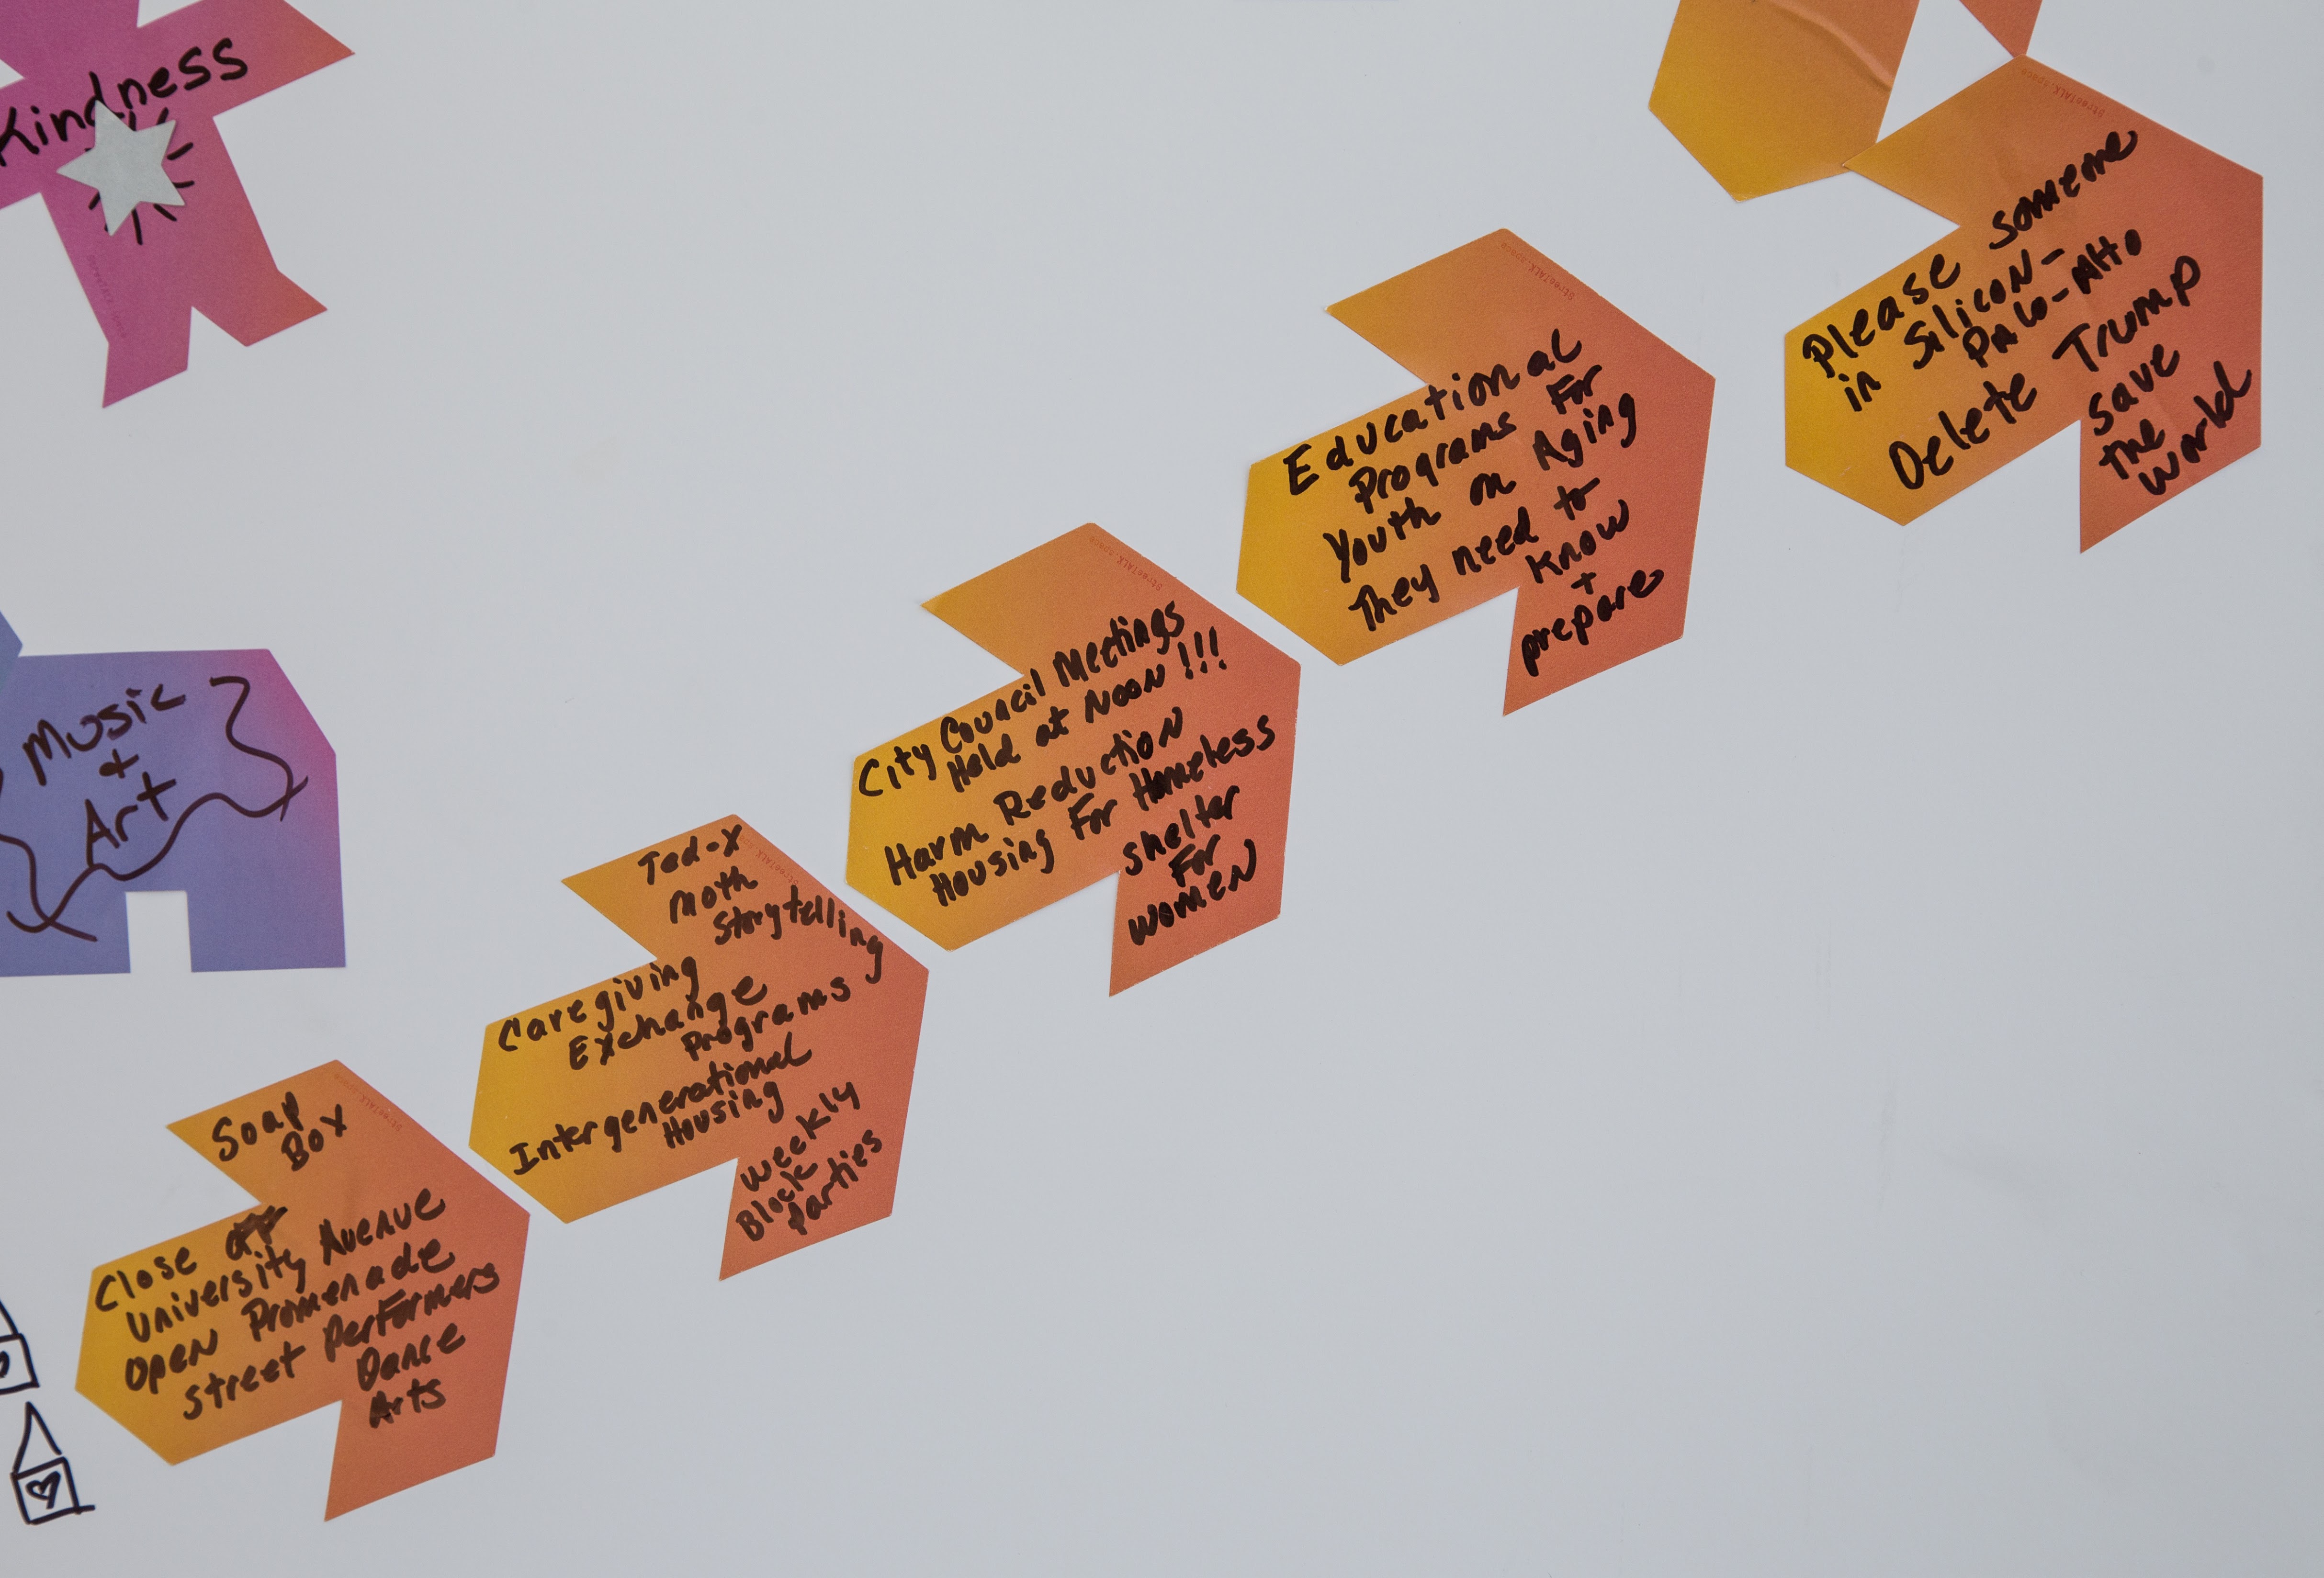 Kindness
Music
+
Art
Soap
Box
Close off
University Avenue
Open Promenade
Street Performers
Dance
Arts
Ted-X
Moth
Storytelling
Caregiving
Exchange
Programs
Intergenerational
Housing
Weekly
Block
Parties
City Council Meetings
Held at Noon!!!
Harm Reduction
Housing For Homeless
Shelter
For
Women
Educational
Programs For
Youth on Aging
They need to
Know
+
prepare
Please someone
in Silicon-
Palo-Alto
Delete Trump
save
the
world
StreeTALK.space
StreeTALK.space
StreeTALK.space
StreeTALK.space
StreeTALK.space